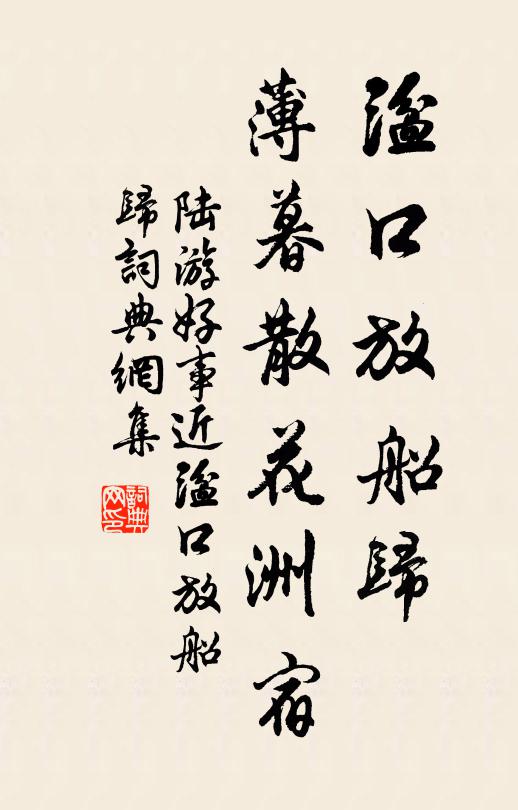 溢口放船歸
薄暮散花洲宿
陆游好事近溢口放船
歸詞典網集
詞典
网印